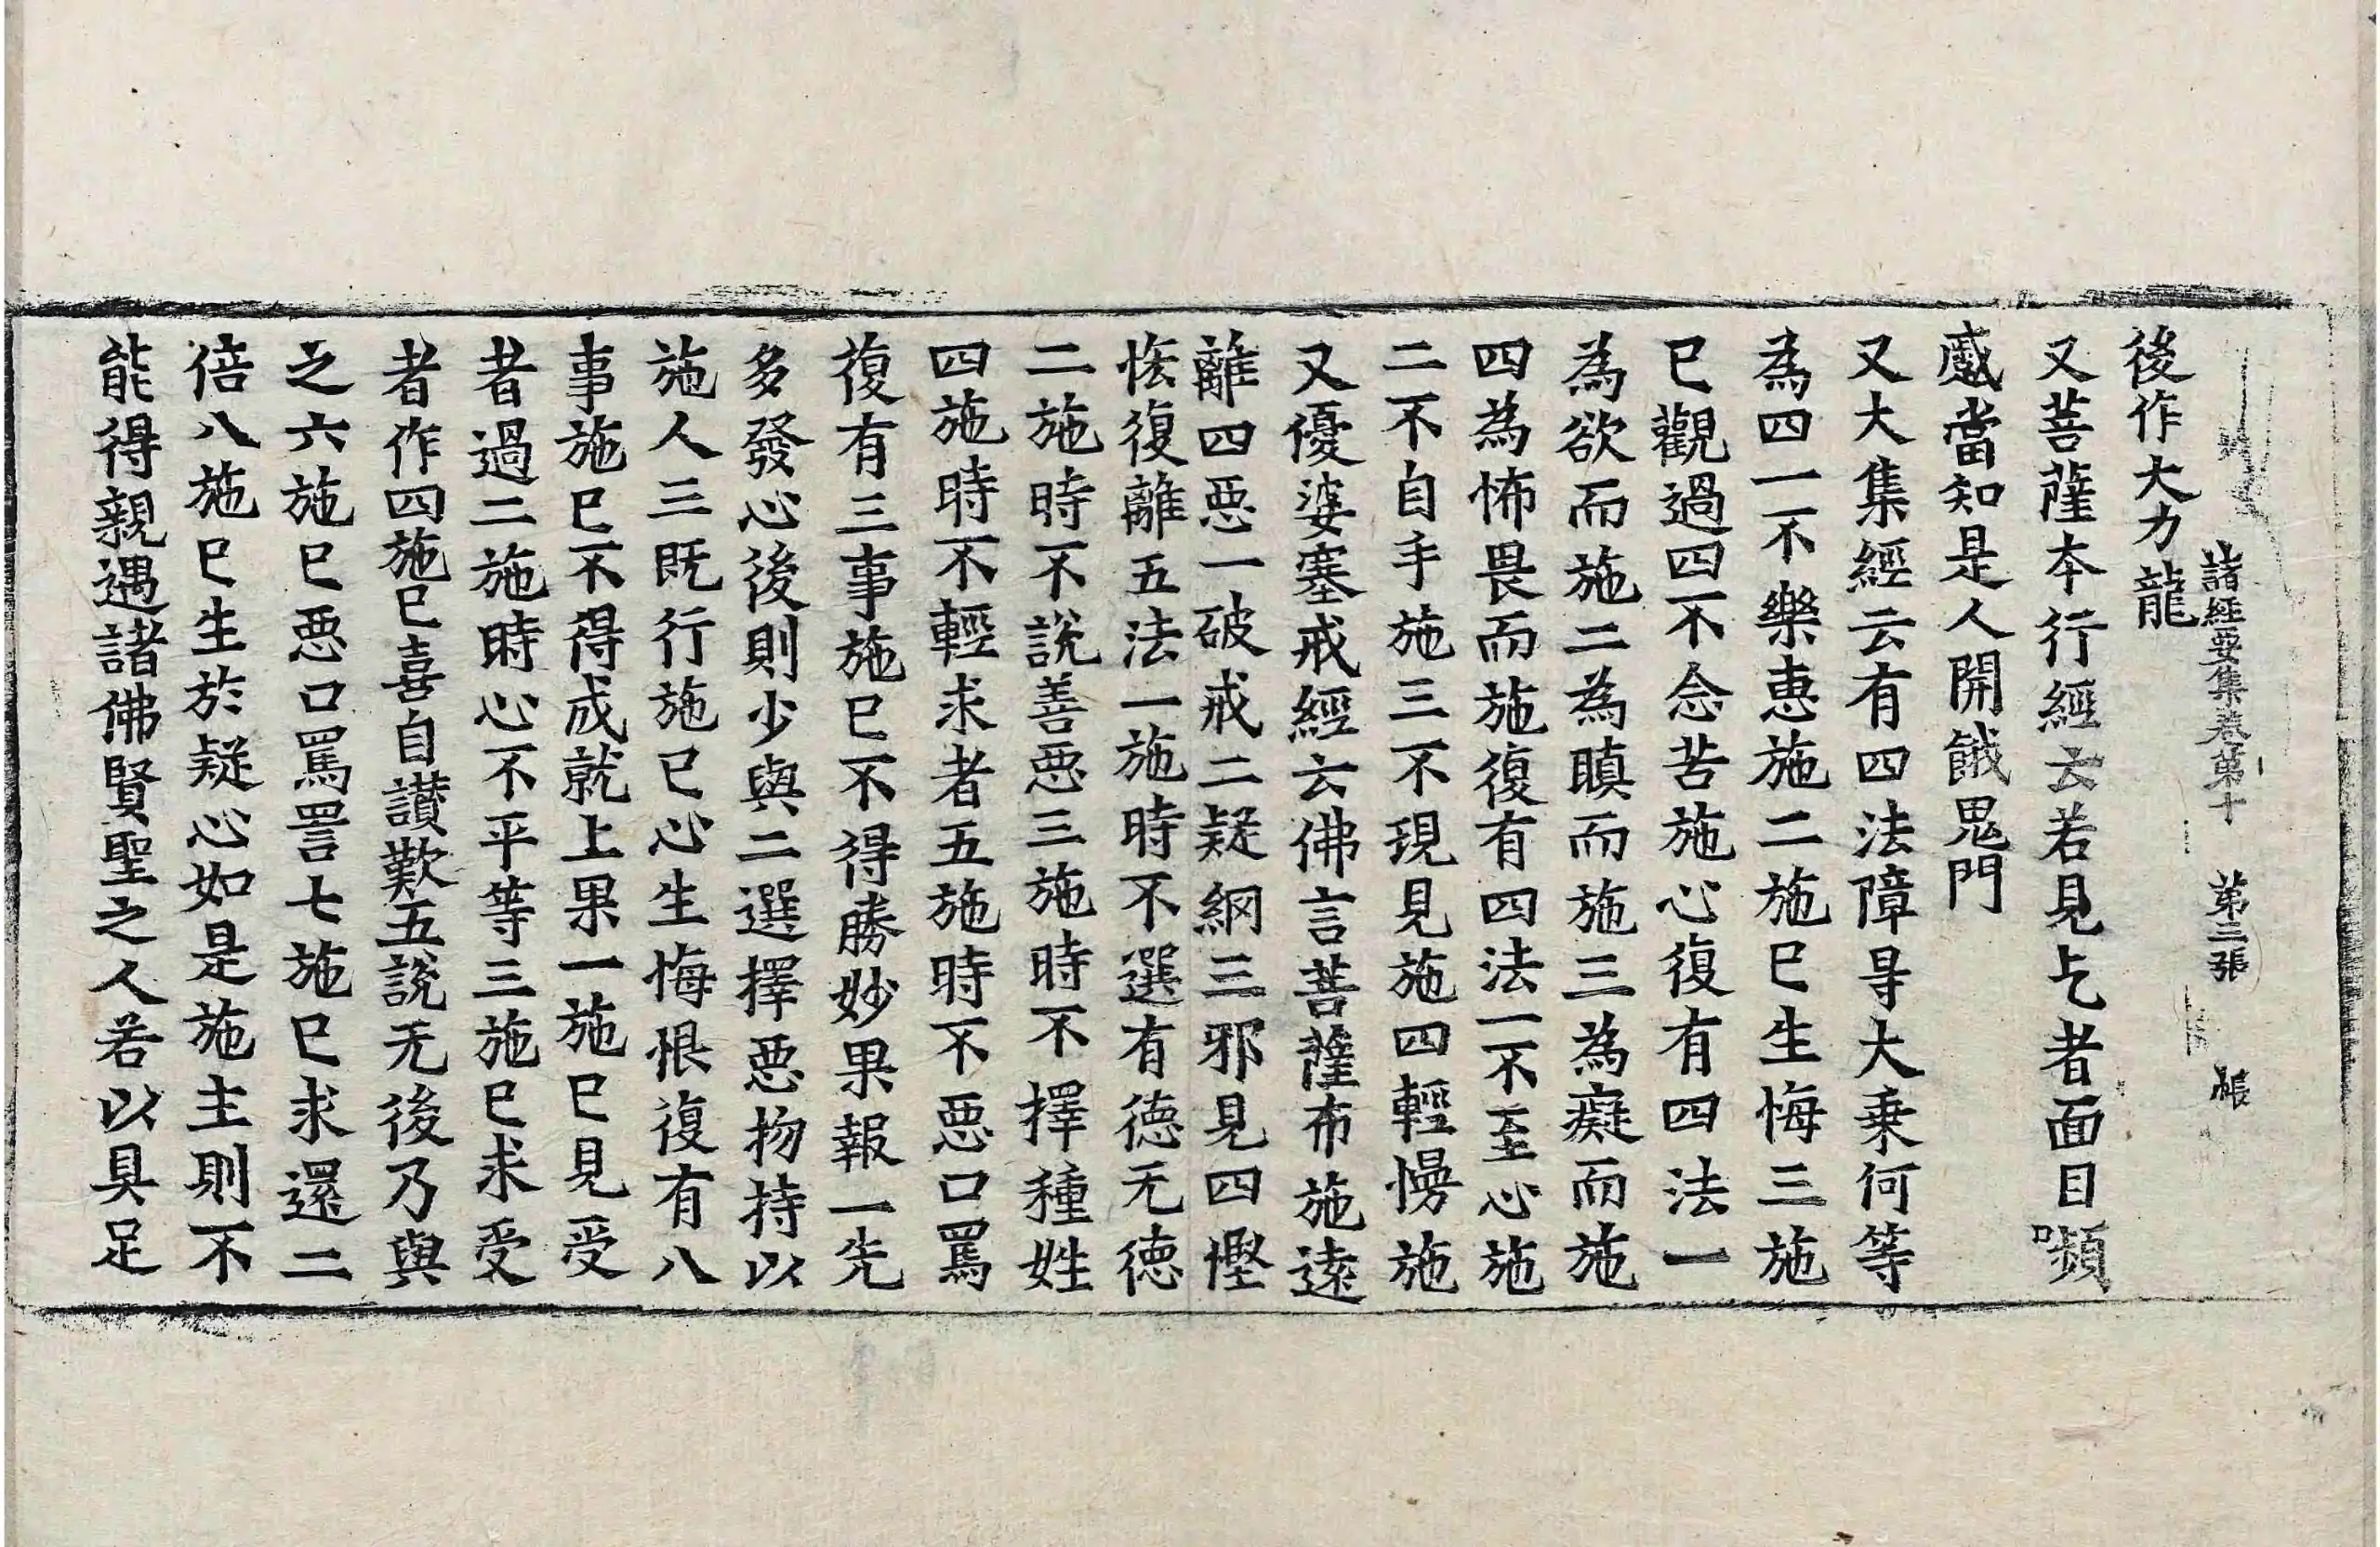 諸經要集卷第十 第三張 帳
後作大力龍
又菩薩本行經云若見乞者面目嚬
蹙當知是人開餓鬼門
又大集經云有四法障㝵大乘何等
為四一不樂惠施二施已生悔三施
已觀過四不念苦施心復有四法一
為欲而施二為瞋而施三為癡而施
四為怖畏而施復有四法一不至心施
二不自手施三不現見施四輕慢施
又優婆塞戒經云佛言菩薩布施遠
離四惡一破戒二疑網三邪見四慳
悋復離五法一施時不選有德无德
二施時不說善惡三施時不擇種姓
四施時不輕求者五施時不惡口罵
復有三事施已不得勝妙果報一先
多發心後則少與二選擇惡物持以
施人三既行施已心生悔恨復有八
事施已不得成就上果一施已見受
者過二施時心不平等三施已求受
者作四施已喜自讃歎五說无後乃與
之六施已惡口罵詈七施已求還二
倍八施已生於疑心如是施主則不
能得親遇諸佛賢聖之人若以具足